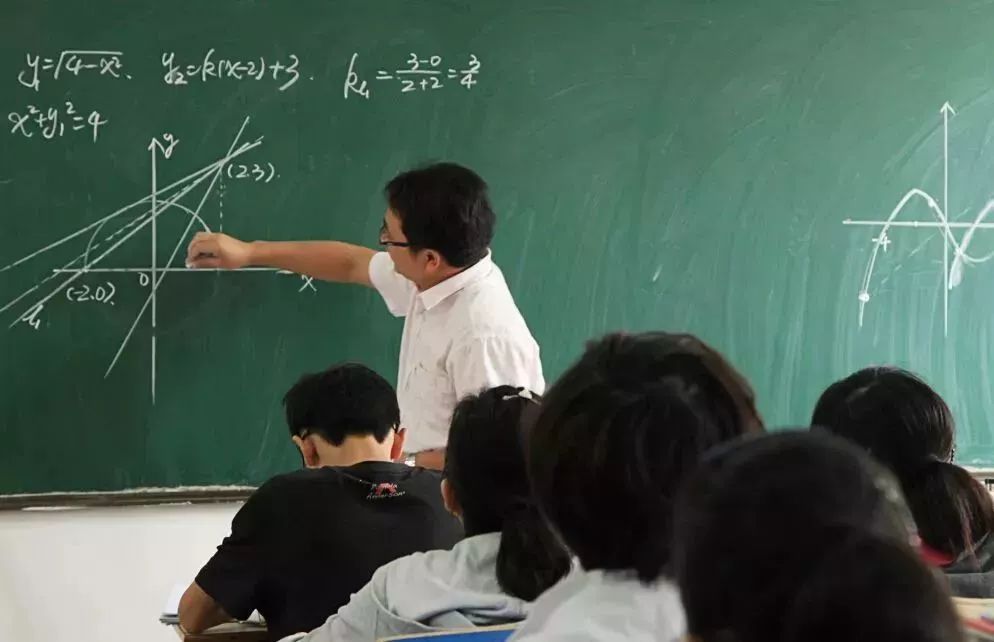 y₁=√4-x². y₂=k(x-2)+3. k₁=3-0/2+2=3/4
x²+y₁²=4
y
(2.3).
0
x
(-2.0).
l₁